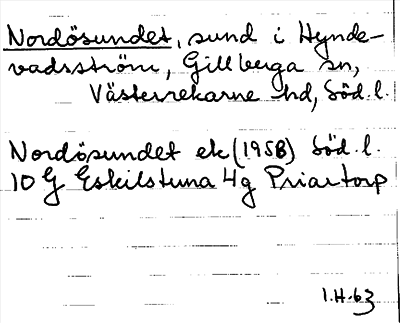 Nordösundet, sund i Hynde-
vadsström, Gillberga sn,
Västerrekarne hd, Söd.l.
Nordösundet ek (1958) Söd.l.
10G Eskilstuna 4g Priartorp
1.H.63